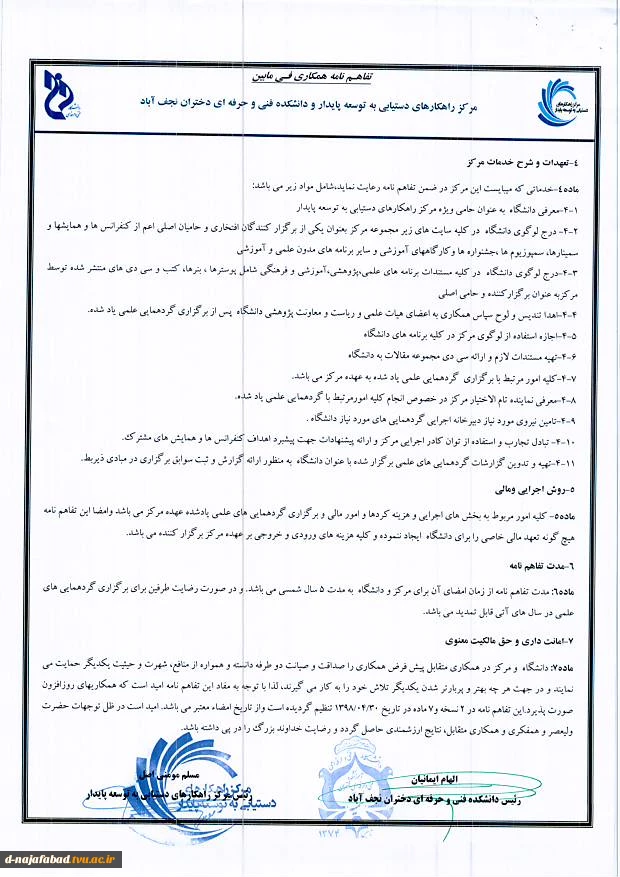 تفاهم نامه همکاری فی مابین
مرکز راهکارهای دستیابی به توسعه پایدار و دانشکده فنی و حرفه ای دختران نجف آباد
مرکز راهکارهای
دستیابی به توسعه پایدار
۴-تعهدات و شرح خدمات مرکز
ماده۴-خدماتی که میبایست این مرکز در ضمن تفاهم نامه رعایت نماید،شامل مواد زیر می باشد:
۴-۱-معرفی دانشگاه به عنوان حامی ویژه مرکز راهکارهای دستیابی به توسعه پایدار
۴-۲- درج لوگوی دانشگاه در کلیه سایت های زیر مجموعه مرکز بعنوان یکی از برگزار کنندگان افتخاری و حامیان اصلی اعم از کنفرانس ها و همایشها و
سمینارها، سمپوزیوم ها ،جشنواره ها وکارگاههای آموزشی و سایر برنامه های مدون علمی و آموزشی
۴-۳-درج لوگوی دانشگاه در کلیه مستندات برنامه های علمی،پژوهشی،آموزشی و فرهنگی شامل پوسترها ، بنرها، کتب و سی دی های منتشر شده توسط
مرکزبه عنوان برگزارکننده و حامی اصلی
۴-۴-اهدا تندیس و لوح سپاس همکاری به اعضای هیات علمی و ریاست و معاونت پژوهشی دانشگاه پس از برگزاری گردهمایی علمی یاد شده.
۴-۵-اجازه استفاده از لوگوی مرکز در کلیه برنامه های دانشگاه
۴-۶-تهیه مستندات لازم و ارائه سی دی مجموعه مقالات به دانشگاه
۴-۷-کلیه امور مرتبط با برگزاری گردهمایی علمی یاد شده به عهده مرکز می باشد.
۴-۸-معرفی نماینده تام الاختیار مرکز در خصوص انجام کلیه امورمرتبط با گردهمایی علمی یاد شده.
۴-۹-تامین نیروی مورد نیاز دبیرخانه اجرایی گردهمایی های مورد نیاز دانشگاه .
۴-۱۰- تبادل تجارب و استفاده از توان کادر اجرایی مرکز و ارائه پیشنهادات جهت پیشبرد اهداف کنفرانس ها و همایش های مشترک.
۴-۱۱-تهیه و تدوین گزارشات گردهمایی های علمی برگزار شده با عنوان دانشگاه به منظور ارائه گزارش و ثبت سوابق برگزاری در مبادی ذیربط.
۵-روش اجرایی ومالی
ماده۵- کلیه امور مربوط به بخش های اجرایی و هزینه کردها و امور مالی و برگزاری گردهمایی های علمی یادشده عهده مرکز می باشد وامضا این تفاهم نامه
هیچ گونه تعهد مالی خاصی را برای دانشگاه ایجاد ننموده و کلیه هزینه های ورودی و خروجی بر عهده مرکز برگزار کننده می باشد.
۶-مدت تفاهم نامه
ماده۶: مدت تفاهم نامه از زمان امضای آن برای مرکز و دانشگاه به مدت ۵ سال شمسی می باشد. و در صورت رضایت طرفین برای برگزاری گردهمایی های
علمی در سال های آتی قابل تمدید می باشد.
۷-امانت داری و حق مالکیت معنوی
ماده۷: دانشگاه و مرکز در همکاری متقابل پیش فرض همکاری را صداقت و صیانت دو طرفه دانسته و همواره از منافع، شهرت و حیثیت یکدیگر حمایت می
نمایند و در جهت هر چه بهتر و پربارتر شدن یکدیگر تلاش خود را به کار می گیرند، لذا با توجه به مفاد این تفاهم نامه امید است که همکاریهای روزافزون
صورت پذیرد.این تفاهم نامه در ۲ نسخه و۷ ماده در تاریخ ۱۳۹۸/۰۴/۳۰ تنظیم گردیده است واز تاریخ امضاء معتبر می باشد. امید است در ظل توجهات حضرت
ولیعصر و همفکری و همکاری متقابل، نتایج ارزشمندی حاصل گردد و رضایت خداوند بزرگ را در پی داشته باشد.
الهام ایمانیان
رئیس دانشکده فنی و حرفه ای دختران نجف آباد
۱۳۷۴
مسلم مومنی اصل
رئیس مرکز راهکارهای دستیابی به توسعه پایدار
مرکز راهکارهای
دستیابی به توسعه پایدار
d-najafabad.tvu.ac.ir